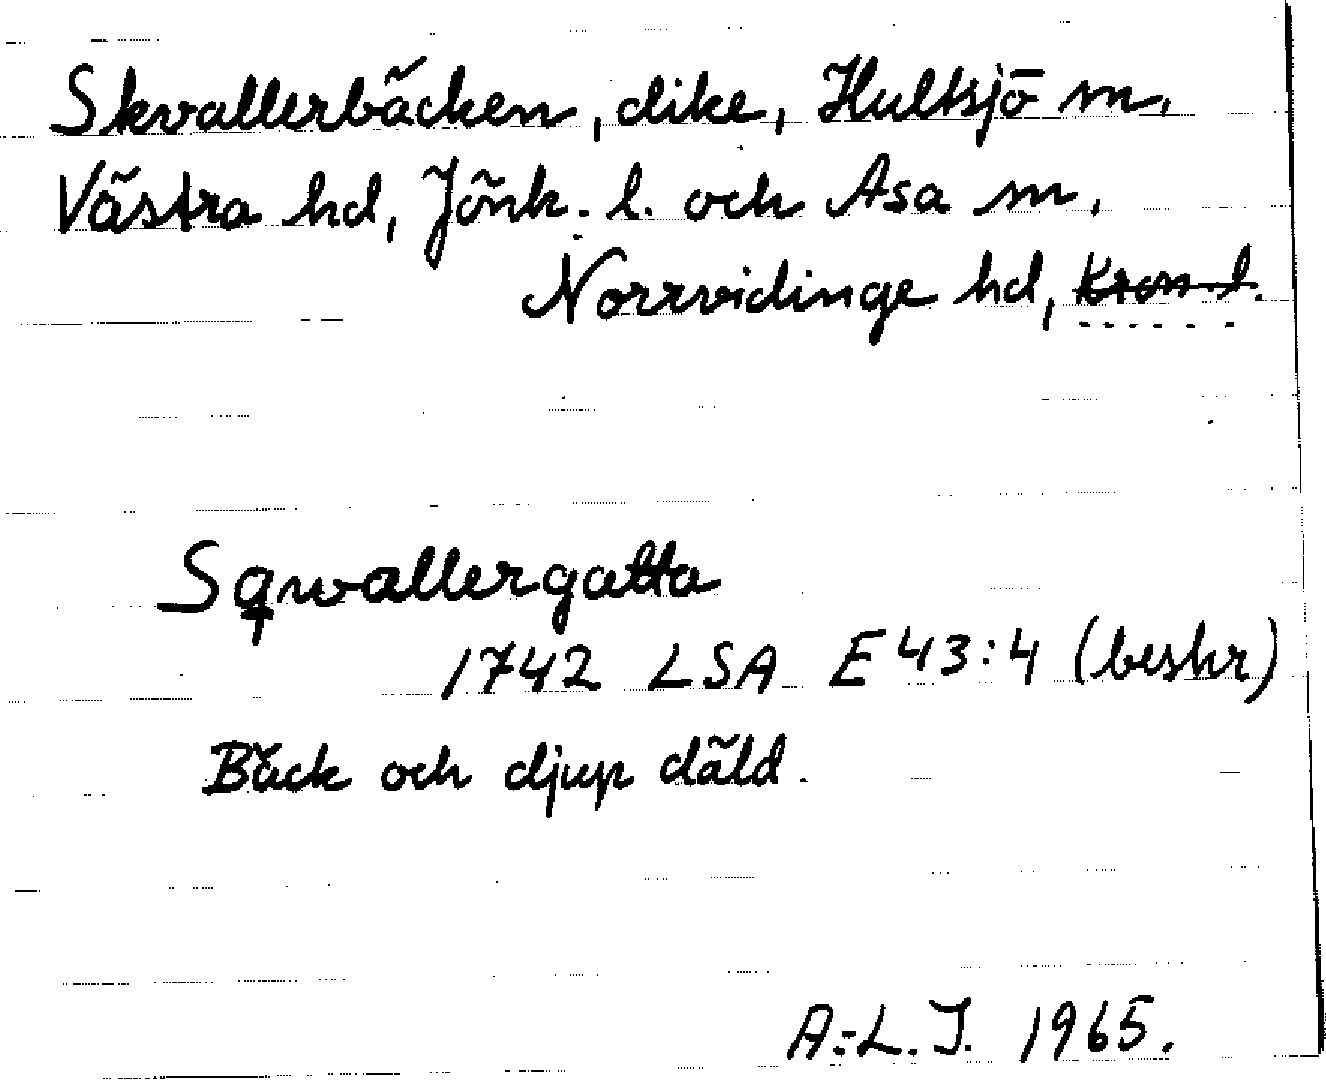 Skvallerbäcken, dike, Hultsjö sn,
Västra hd, Jönk. l. och Asa sn,
Norrvidinge hd, Kron. l.
Sqwallergatta
1742 LSA E 43:4 (beskr)
Bäck och djup däld.
A.-L. J. 1965.